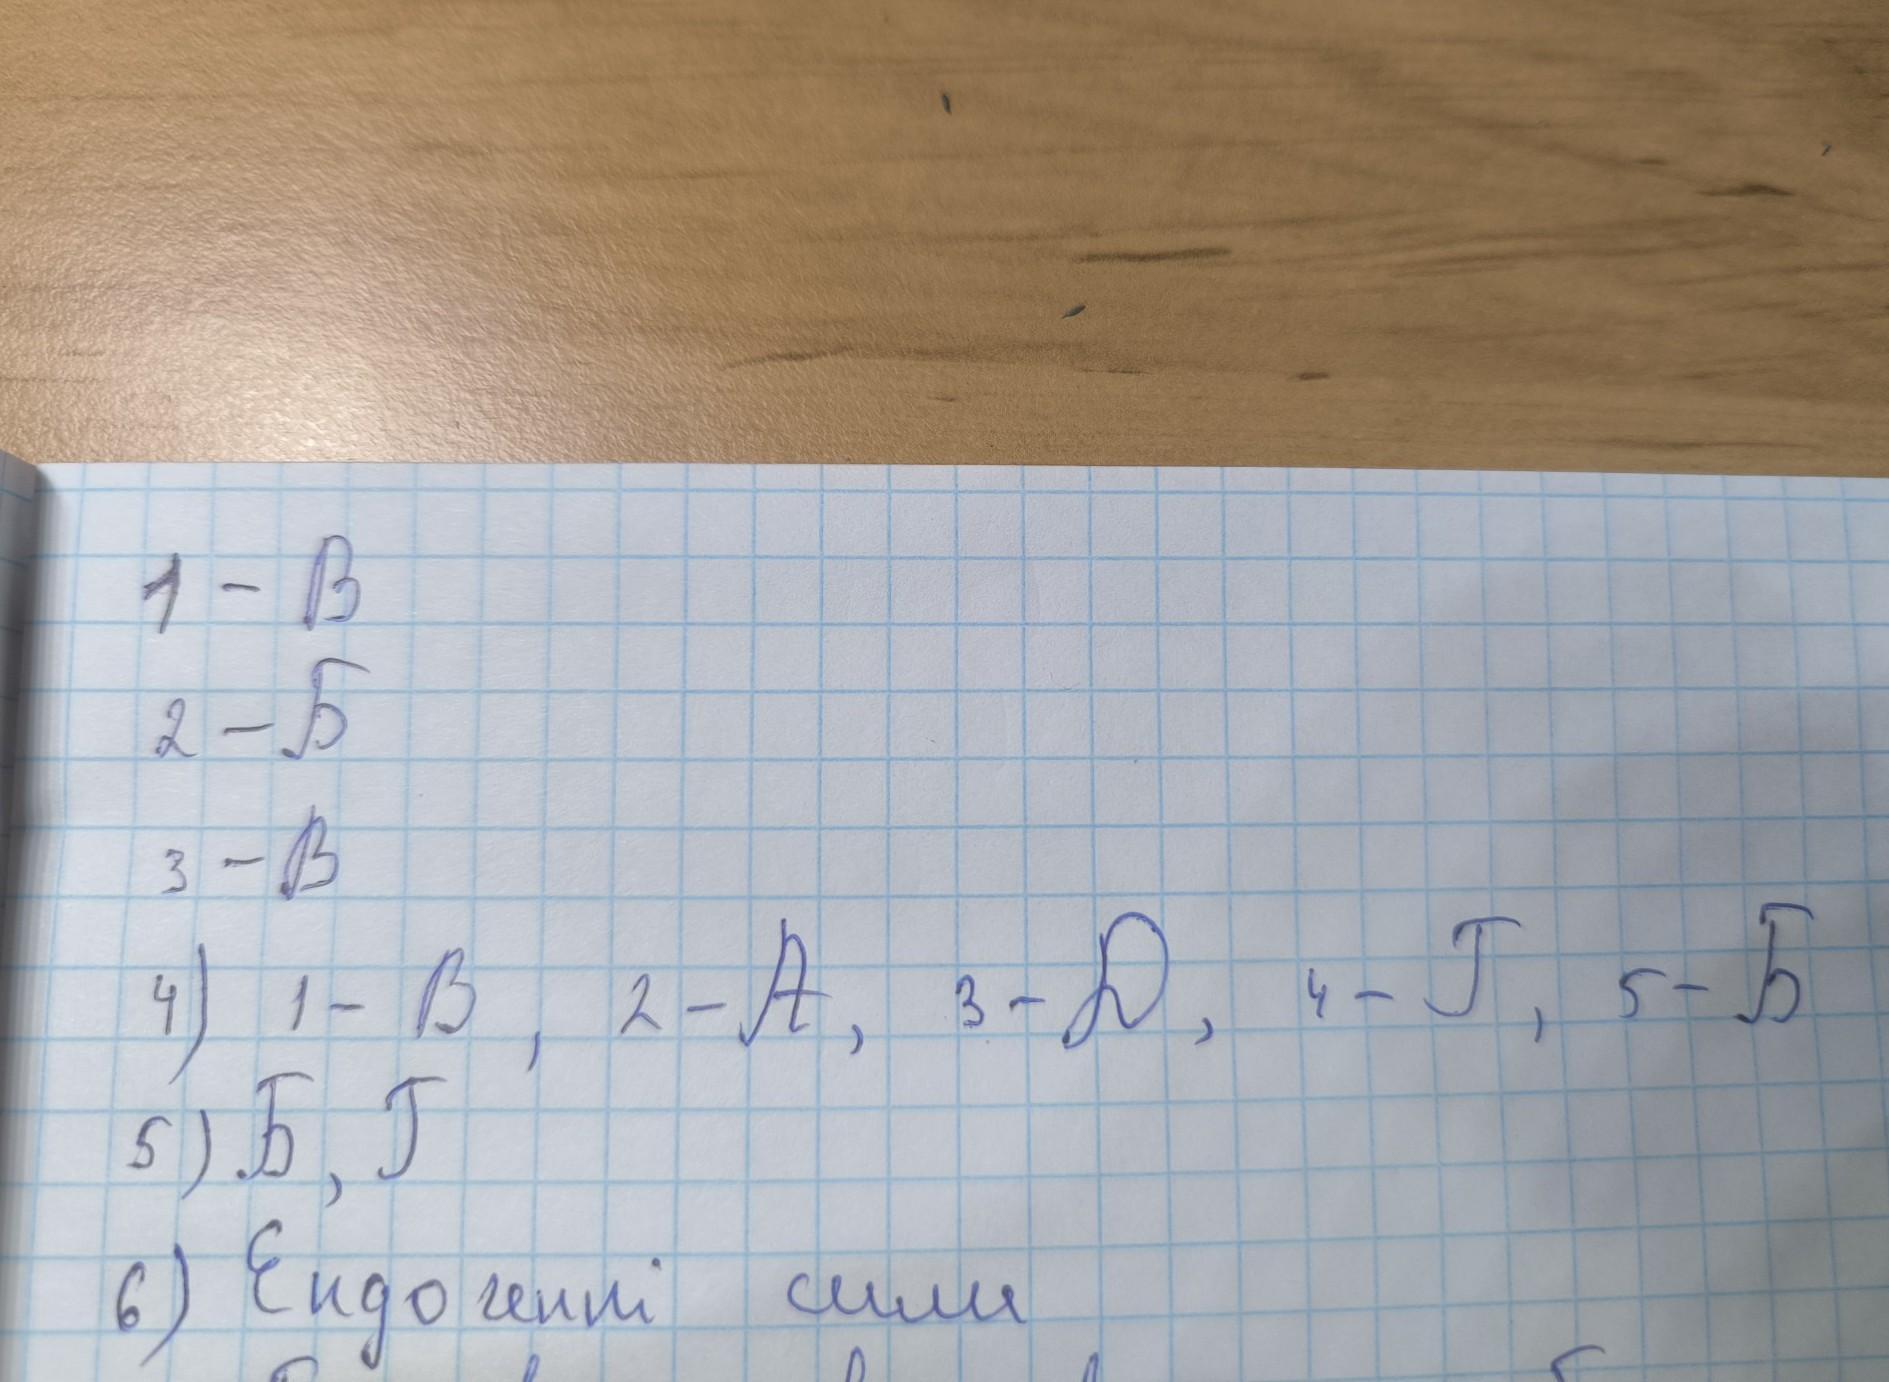 1 - В
2 - Б
3 - В
4) 1 - В, 2 - А, 3 - Д, 4 - Г, 5 - Б
5) Б, Г
6) Ендогенні сили